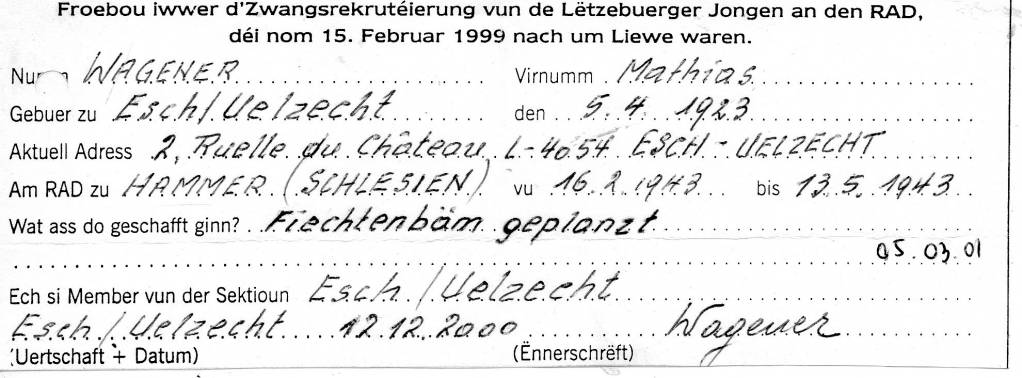 Froebou iwwer d'Zwangsrekrutéierung vun de Lëtzebuerger Jongen an den RAD,
déi nom 15. Februar 1999 nach um Liewe waren.
WAGENER Virnumm Mathias
Gebuer zu Esch/Uelzecht den 5.4.1923
Aktuell Adress 2, Ruelle du Château, L-4054 ESCH-UELZECHT
Am RAD zu HAMMER (SCHLESIEN) vu 16.2.1943 bis 13.5.1943
Wat ass do geschafft ginn? Fiechtenbäm geplanzt
05.03.01
Ech si Member vun der Sektioun Esch/Uelzecht
Esch/Uelzecht 12.12.2000 Wagener
(Uertschaft + Datum) (Ënnerschrëft)